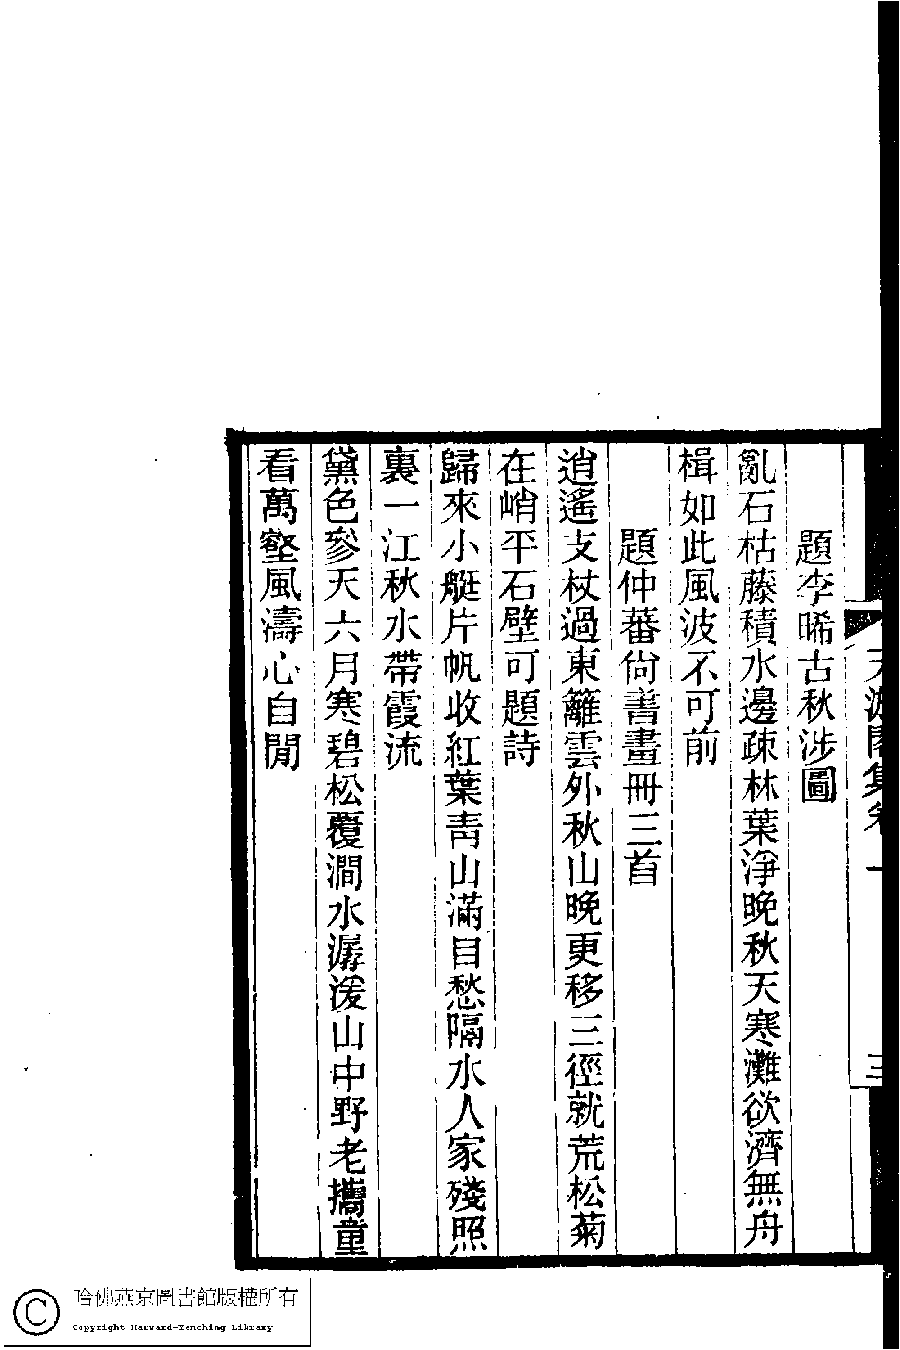 天游閣集卷一
三
題李晞古秋涉圖
亂石枯藤積水邊疎林葉淨晚秋天寒灘欲濟無舟
楫如此風波不可前
題仲蕃尙書畫冊三首
逍遙支杖過東籬雲外秋山晚更移三徑就荒松菊
在峭平石壁可題詩
歸來小艇片帆收紅葉靑山滿目愁隔水人家殘照
裏一江秋水帶霞流
黛色參天六月寒碧松覆澗水潺湲山中野老攜童
看萬壑風濤心自閒
哈佛燕京圖書館版權所有
Copyright Harvard-Yenching Library